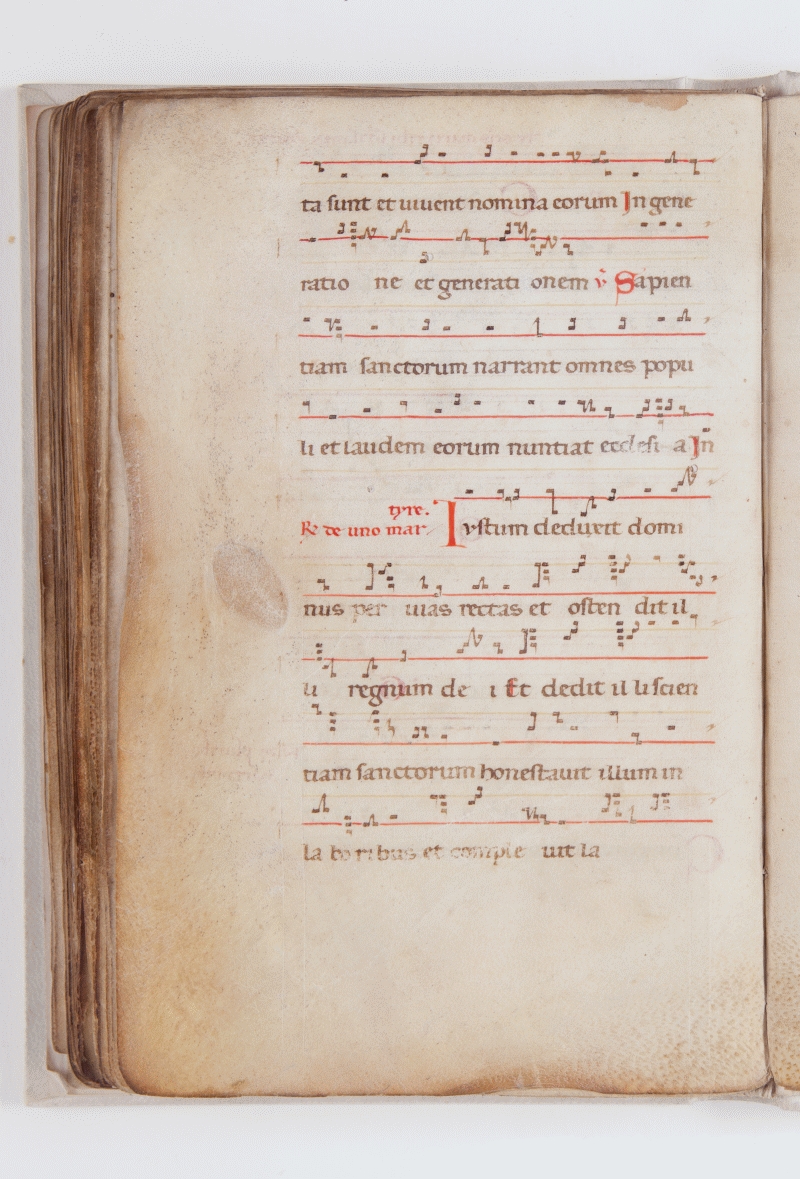 ta sunt et uiuent nomina eorum In gene
ratio ne et generati onem v̓ Sapien
tiam sanctorum narrant omnes popu
li et laudem eorum nuntiat ecclesi a In̄
tyre.
R̷ de uno mar Iustum deduxit domi
nus per uias rectas et osten dit il
li regnum de i Et dedit il li scien
tiam sanctorum honestauit illum in
la bo ribus et comple uit la